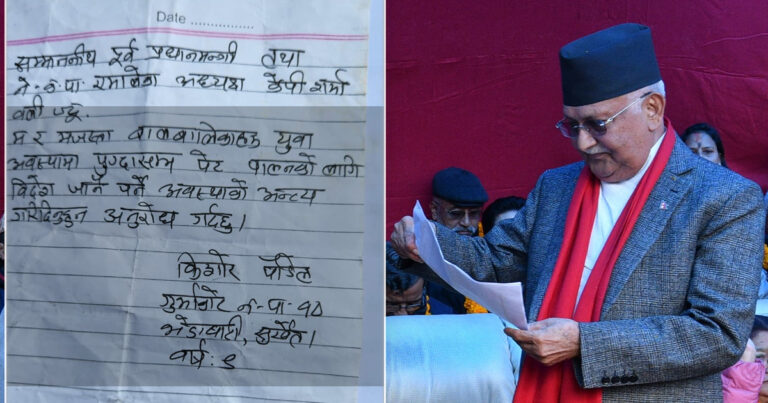 Date ..................
सम्माननीय पूर्व प्रधानमन्त्री तथा
ने.क.पा. एमालेका अध्यक्ष केपी शर्मा
वली ज्यू.
म र मजस्ता बालबालिकाहरु युवा
अवस्थामा पुग्दासम्म पेट पाल्नको लागि
विदेश जानै पर्ने अवस्थाको अन्त्य
गरिदिनुहुन अनुरोध गर्दछु।
किशोर पौडेल
गुर्भाकोट न.पा-१०
मेहेलकुना, सुर्खेत।
वर्ष: ९